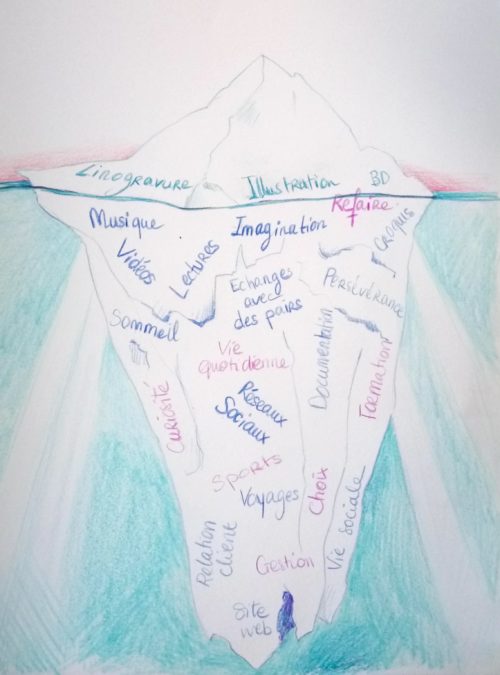 Linogravure
Illustration
BD
Musique
Imagination
Refaire
Croquis
Vidéos
Lectures
Echanges
avec
des pairs
Persévérance
Sommeil
Vie
quotidienne
Documentation
Formation
Curiosité
Réseaux
Sociaux
Sports
Voyages
Choix
Vie sociale
Relation
Client
Gestion
Site
web